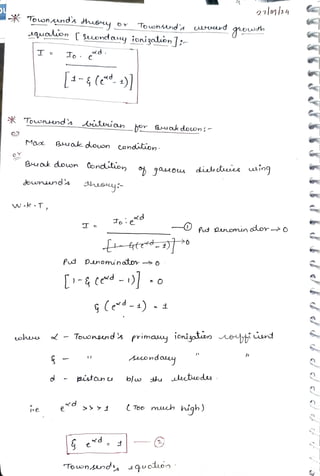 27/01/24
* Townsend's theory or Townsend's current growth
equation [Secondary ionization]:-
I = I₀ · e^αd
[1 - ξ (e^αd - 1)]
* Townsend's criterian for Breakdown:-
Max Break down condition.
Break down Condition of gaseous dielectrics using
townsend's theory:-
W.K.T,
I = I₀ · e^αd ① Put Denominator → 0
[1 - ξ (e^αd - 1)] → 0
Put Denominator → 0
[1 - ξ (e^αd - 1)] = 0
ξ (e^αd - 1) = 1
where α - Townsend's primary ionization coefficient
ξ - " secondary "
d - Distance b/w the electrodes.
e^αd >>> 1 (Too much high)
ξ e^αd = 1 ②
Townsend's equation